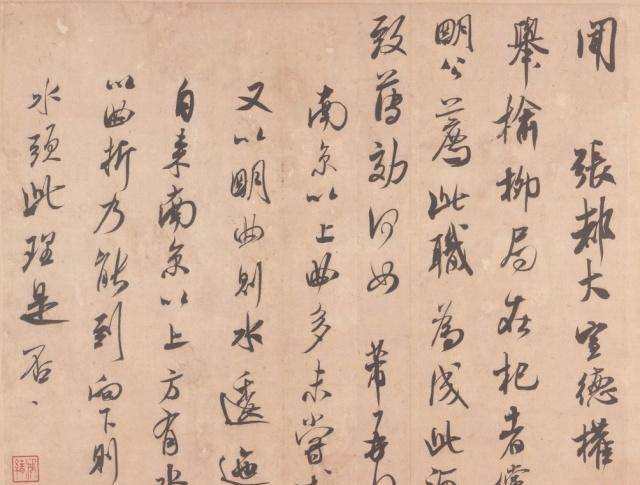 閒 張都大宣德權
舉榆柳局在杞者儻
明公薦此職為成此河
致薄効何如 芾再
南京以上曲多未嘗
又以明曲則水逶迤
自來南京以上方有水
以曲折乃能到向下則
水頭此理是否